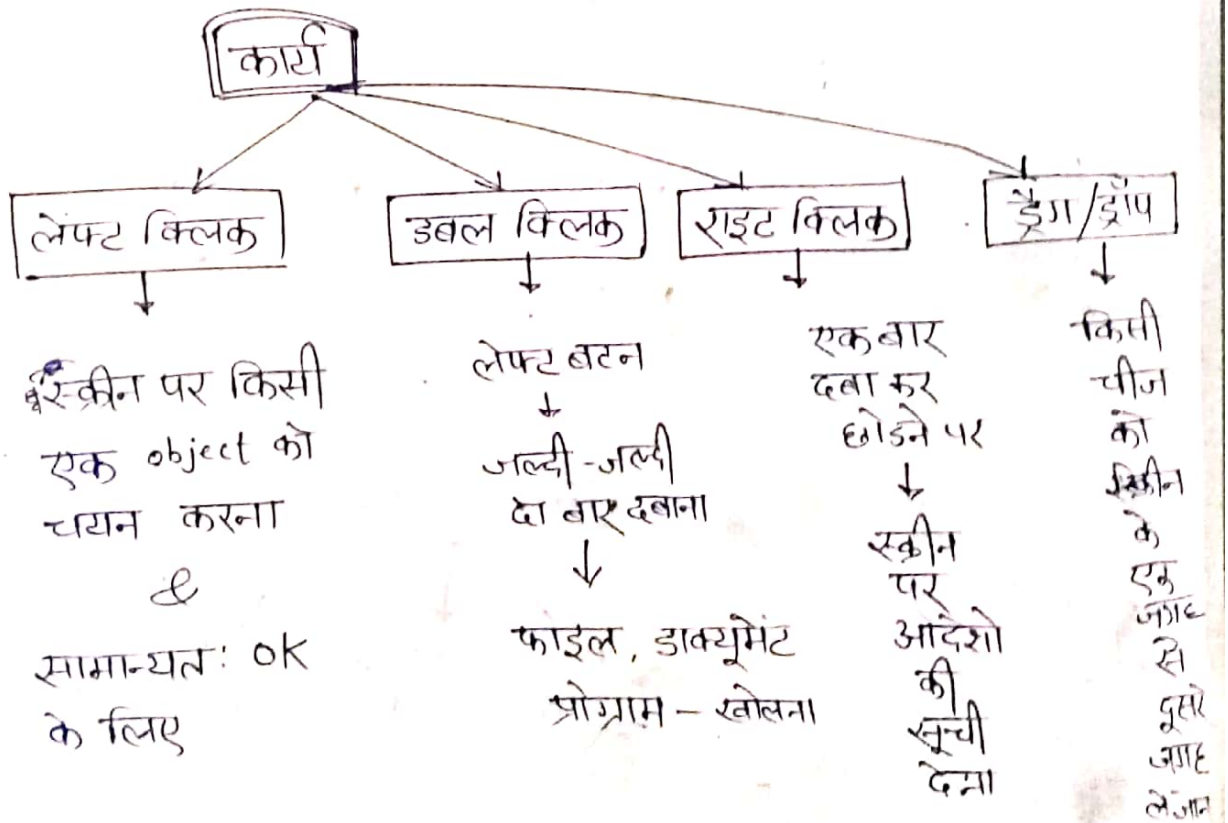 कार्य
लेफ्ट क्लिक
स्क्रीन पर किसी
एक object को
चयन करना
&
सामान्यत: OK
के लिए
डबल क्लिक
लेफ्ट बटन
जल्दी-जल्दी
दो बार दबाना
फाइल, डाक्यूमेंट
प्रोग्राम - खोलना
राइट क्लिक
एक बार
दबा कर
छोडने पर
स्क्रीन
पर
आदेशो
की
सूची
देना
ड्रैग/ड्रॉप
किसी
चीज
को
स्क्रीन
के
एक
जगह
से
दूसरे
जगह
ले जान